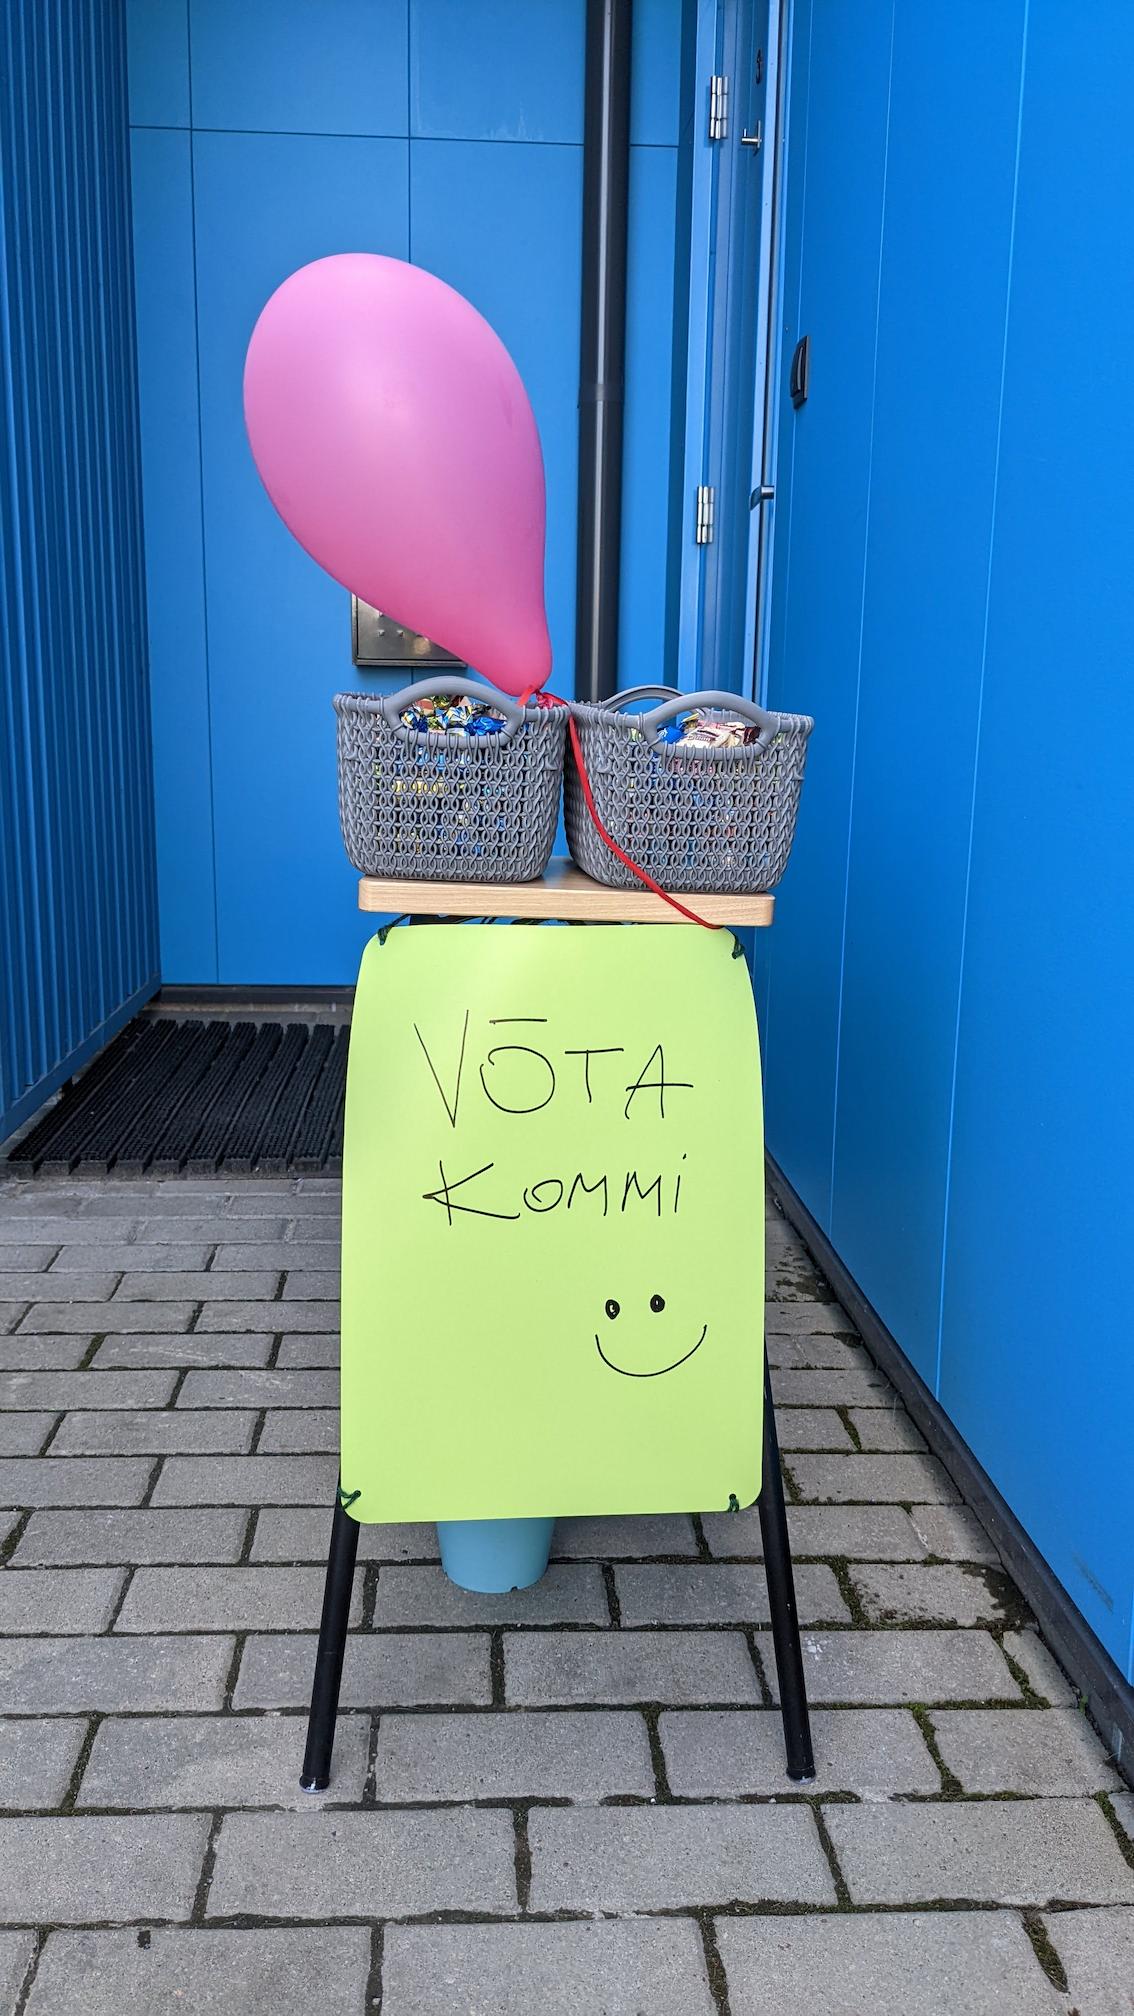 VÕTA
KOMMI